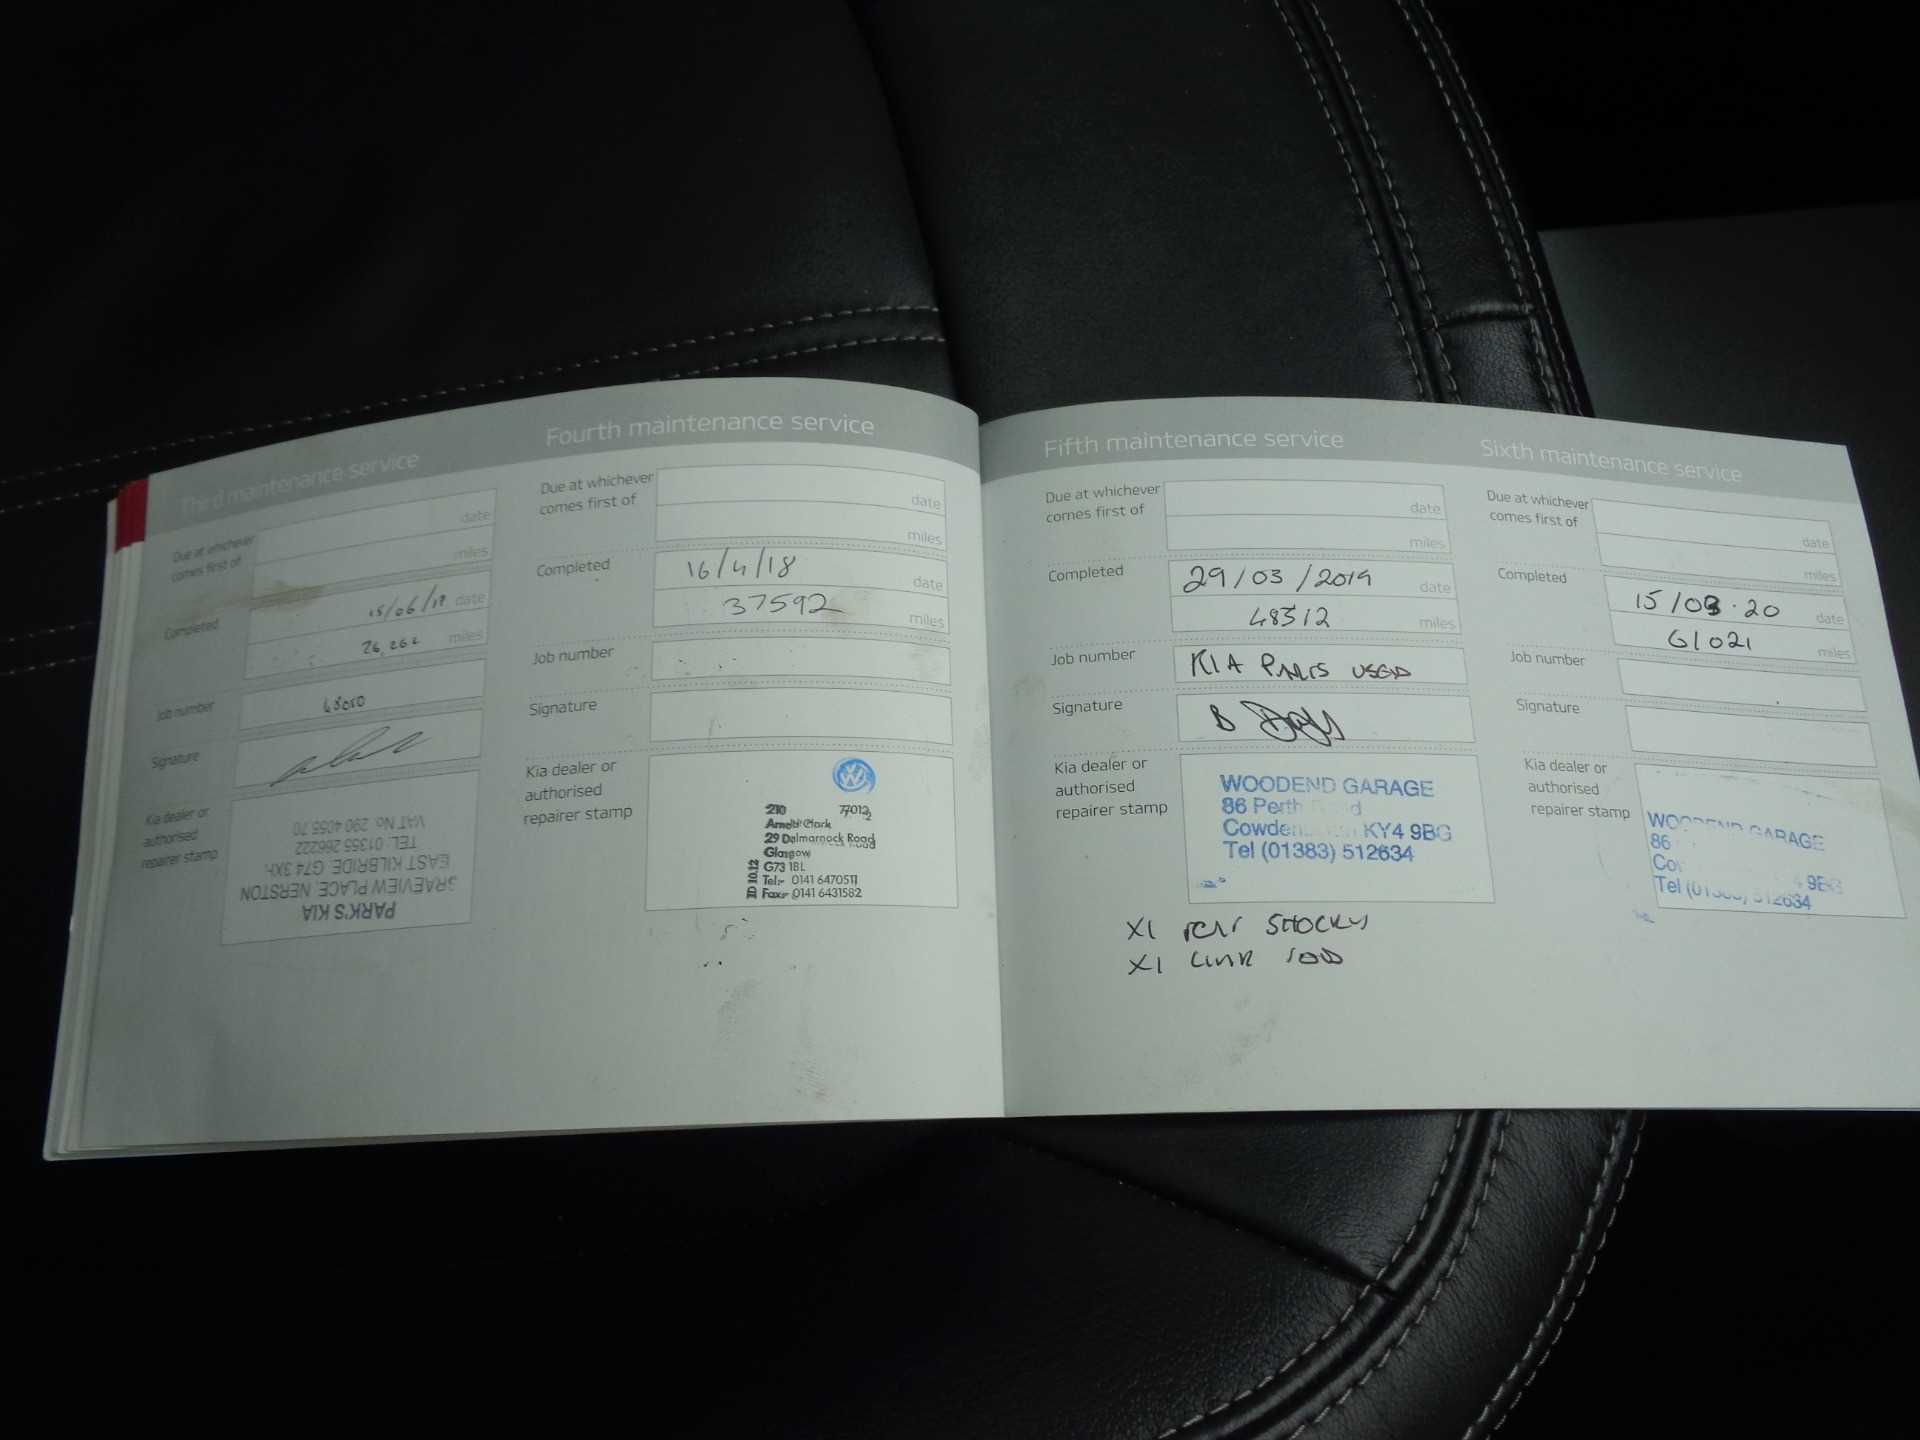 Third maintenance service
Due at whichever
comes first of
date
miles
Completed
date
26,262 miles
Job number
Signature
Kia dealer or
authorised
repairer stamp
PARK'S KIA
GRAEVIEW PLACE, NERSTON
EAST KILBRIDE, G74 3XH.
TEL: 01355 266222
VAT No 290 4055 70
Fourth maintenance service
Due at whichever
comes first of
date
miles
Completed
16/4/18 date
37592 miles
Job number
Signature
Kia dealer or
authorised
repairer stamp
210 77012
Arnold Clark
29 Dalmarnock Road
Glasgow
G73 1BL
Tel:- 0141 6470511
Fax:- 0141 6431582
ID 1012
Fifth maintenance service
Due at whichever
comes first of
date
miles
Completed
29/03/2019 date
48512 miles
Job number
KIA PARTS USED
Signature
B
Kia dealer or
authorised
repairer stamp
WOODEND GARAGE
86 Perth
KY4 9BG
Tel (01383) 512634
X1 rear SHOCKS
X1 LINK ROD
Sixth maintenance service
Due at whichever
comes first of
date
miles
Completed
15/03.20 date
61021 miles
Job number
Signature
Kia dealer or
authorised
repairer stamp
WOODEND GARAGE
86
9BG
Tel (01383) 512634